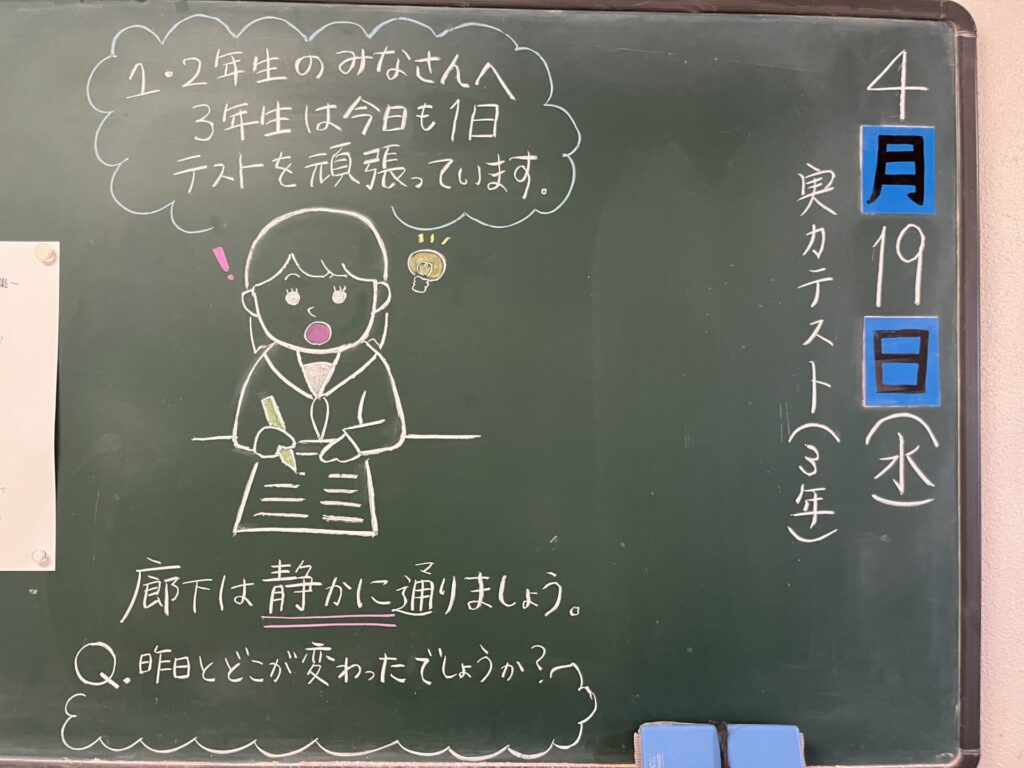 4月19日(水)
実力テスト(3年)
1・2年生のみなさんへ
3年生は今日も1日
テストを頑張っています。
!
廊下は静かに通りましょう。
Q.昨日とどこが変わったでしょうか?
集~